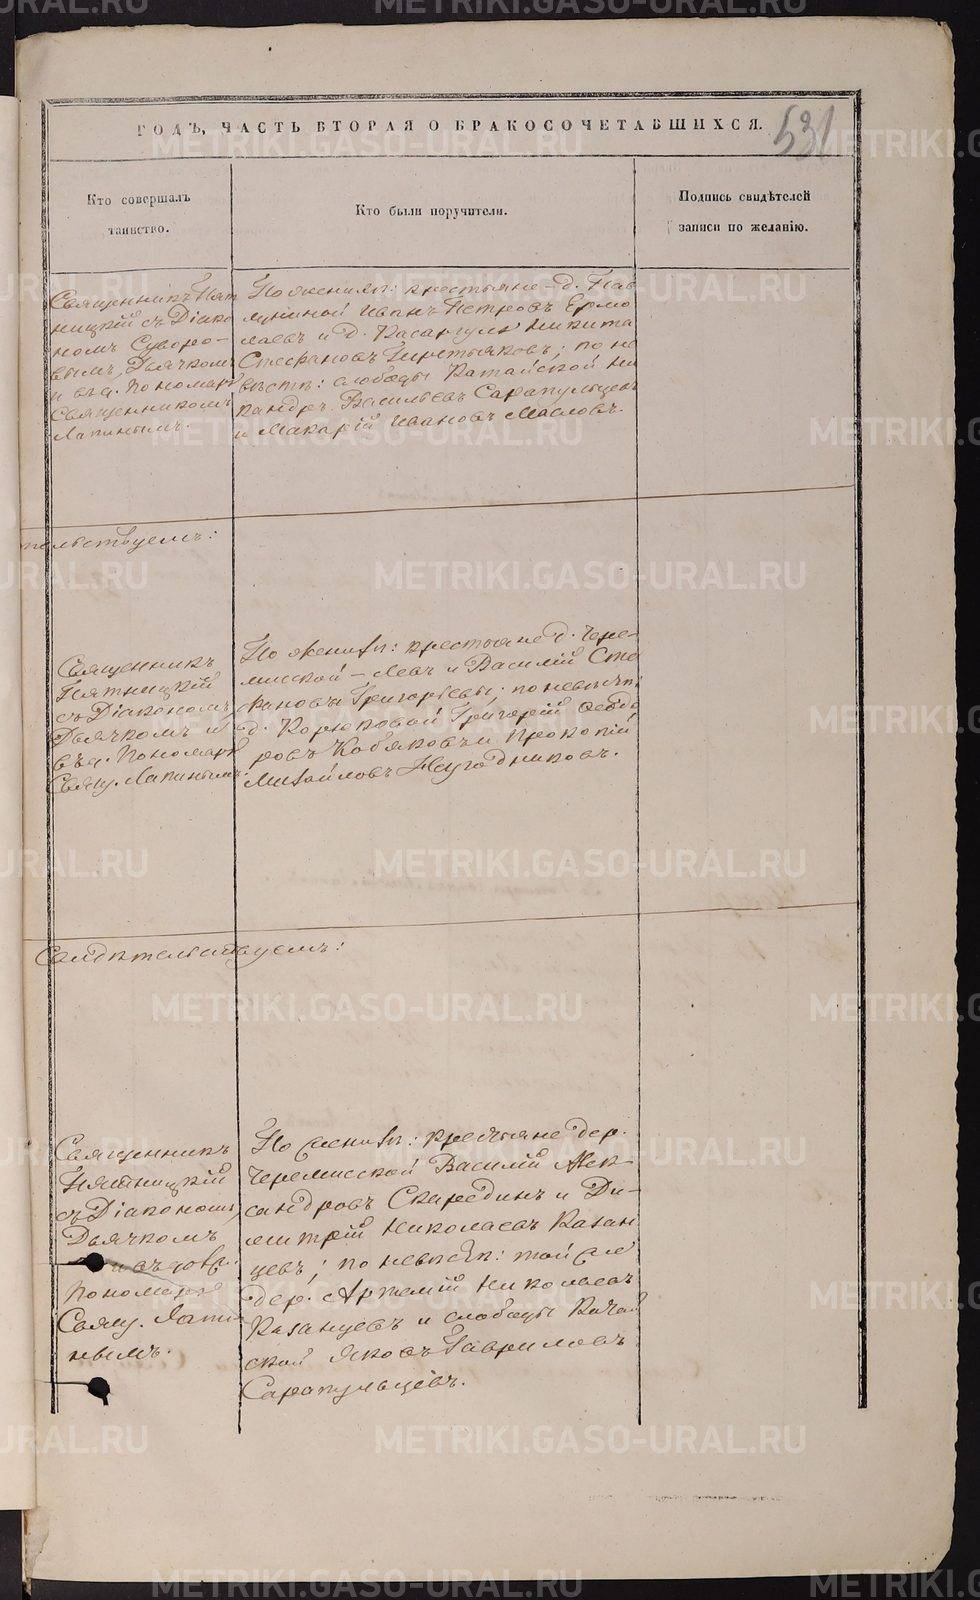 ГОДЪ, ЧАСТЬ ВТОРАЯ О БРАКОСОЧЕТАВШИХСЯ.
531
Кто совершалъ
таинство.
Кто были поручители.
Подпись свидѣтелей
записи по желанію.
Священникъ Пят
ницкій съ Діако
номъ Суворо-
вымъ, Дьячкомъ
и въ д. Пономаря
Священникомъ
Лапинымъ.
По женихѣ: крестьяне д.
Иванъ Петровъ Ермо
лаевъ и д. Касаргуля Никита
Стефановъ Третьяковъ; по не
вѣстѣ: слободы Катайской Ни
кандръ Васильевъ Сарапульцевъ
и Макарій Ивановъ Масловъ.
тельствуемъ:
Священникъ
Пятницкій
съ Діакономъ,
Дьячкомъ и
въ д. Пономаря
Свящ. Лапинымъ.
По женихѣ: крестьяне д. Чере-
мисской - Левъ и Василій Сте
фановы Григорьевы; по невѣстѣ:
д. Корюковой Григорій Ѳеодо
ровъ Кобяковъ и Прокопій
Михайловъ
Свидѣтельствуемъ:
Священникъ
Пятницкій
съ Діакономъ,
Дьячкомъ
и въ долж.
Пономаря
Свящ. Лапи-
нымъ.
По женихѣ: крестьяне дер.
Черемисской Василій Алек-
сандровъ Скарединъ и Ди-
митрій Николаевъ Казан
цевъ; по невѣстѣ: той же
дер. Артемій Николаевъ
Казанцевъ и слободы Катай
ской Яковъ Гавриловъ
Сарапульцевъ.
METRIKI.GASO-URAL.RU